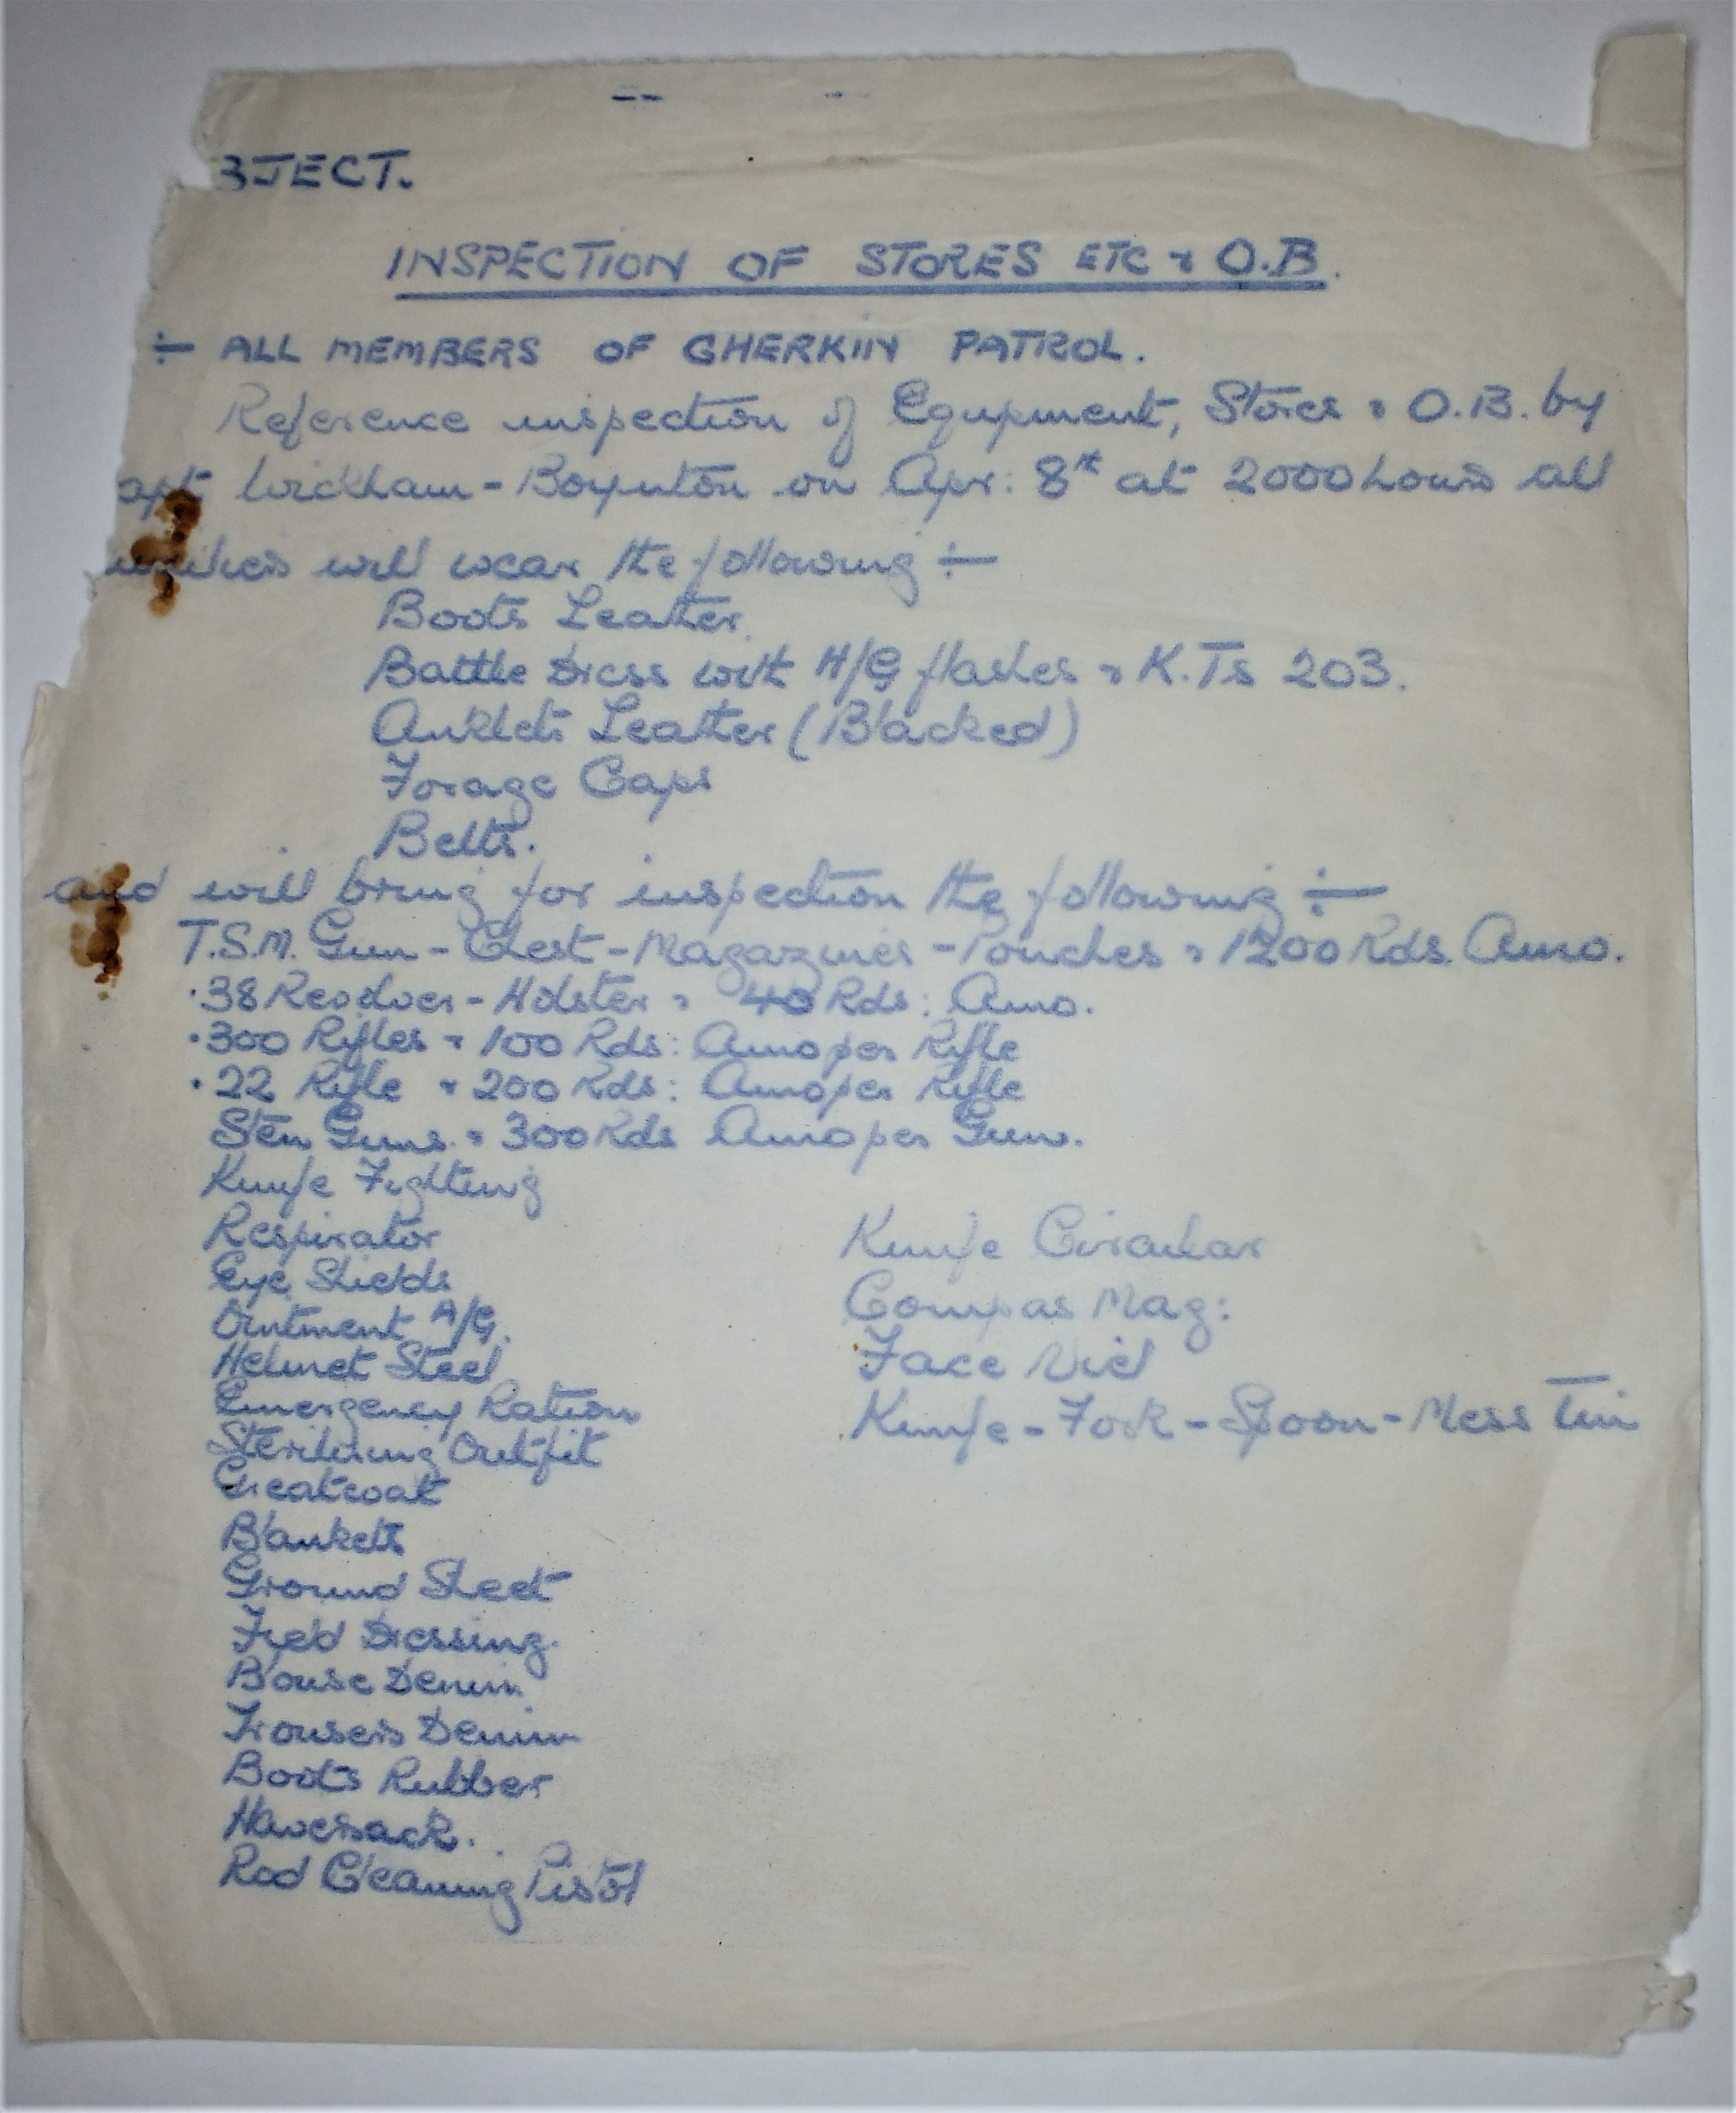 BJECT.
INSPECTION OF STORES ETC & O.B.
÷ ALL MEMBERS OF GHERKIIN PATROL.
Reference inspection of Equipment, Stores & O.B. by
apt Wickham-Boynton on Apr: 8th at 2000 hours all
will wear the following ÷
Boots Leather.
Battle Dress with H/G flashes & K.Ts 203.
Anklets Leather (Blacked)
Forage Caps
Belts.
and will bring for inspection the following ÷
T.S.M. Gun - Chest - Magazines - Pouches & 1200 Rds. Amo.
.38 Revolver - Holster & 40 Rds: Amo.
.300 Rifles & 100 Rds: Amo per Rifle
.22 Rifle & 200 Rds: Amo per Rifle
Sten Guns. & 300 Rds Amo per Gun.
Knife Fighting
Respirator
Eye Shields
Ointment A/G.
Helmet Steel
Emergency Ration
Sterilising Outfit
Greatcoat
Blankets
Ground Sheet
Field Dressing.
Blouse Denim
Trousers Denim
Boots Rubber
Haversack.
Rod Cleaning Pistol
Knife Circular
Compas Mag:
Face Viel
Knife - Fork - Spoon - Mess Tin